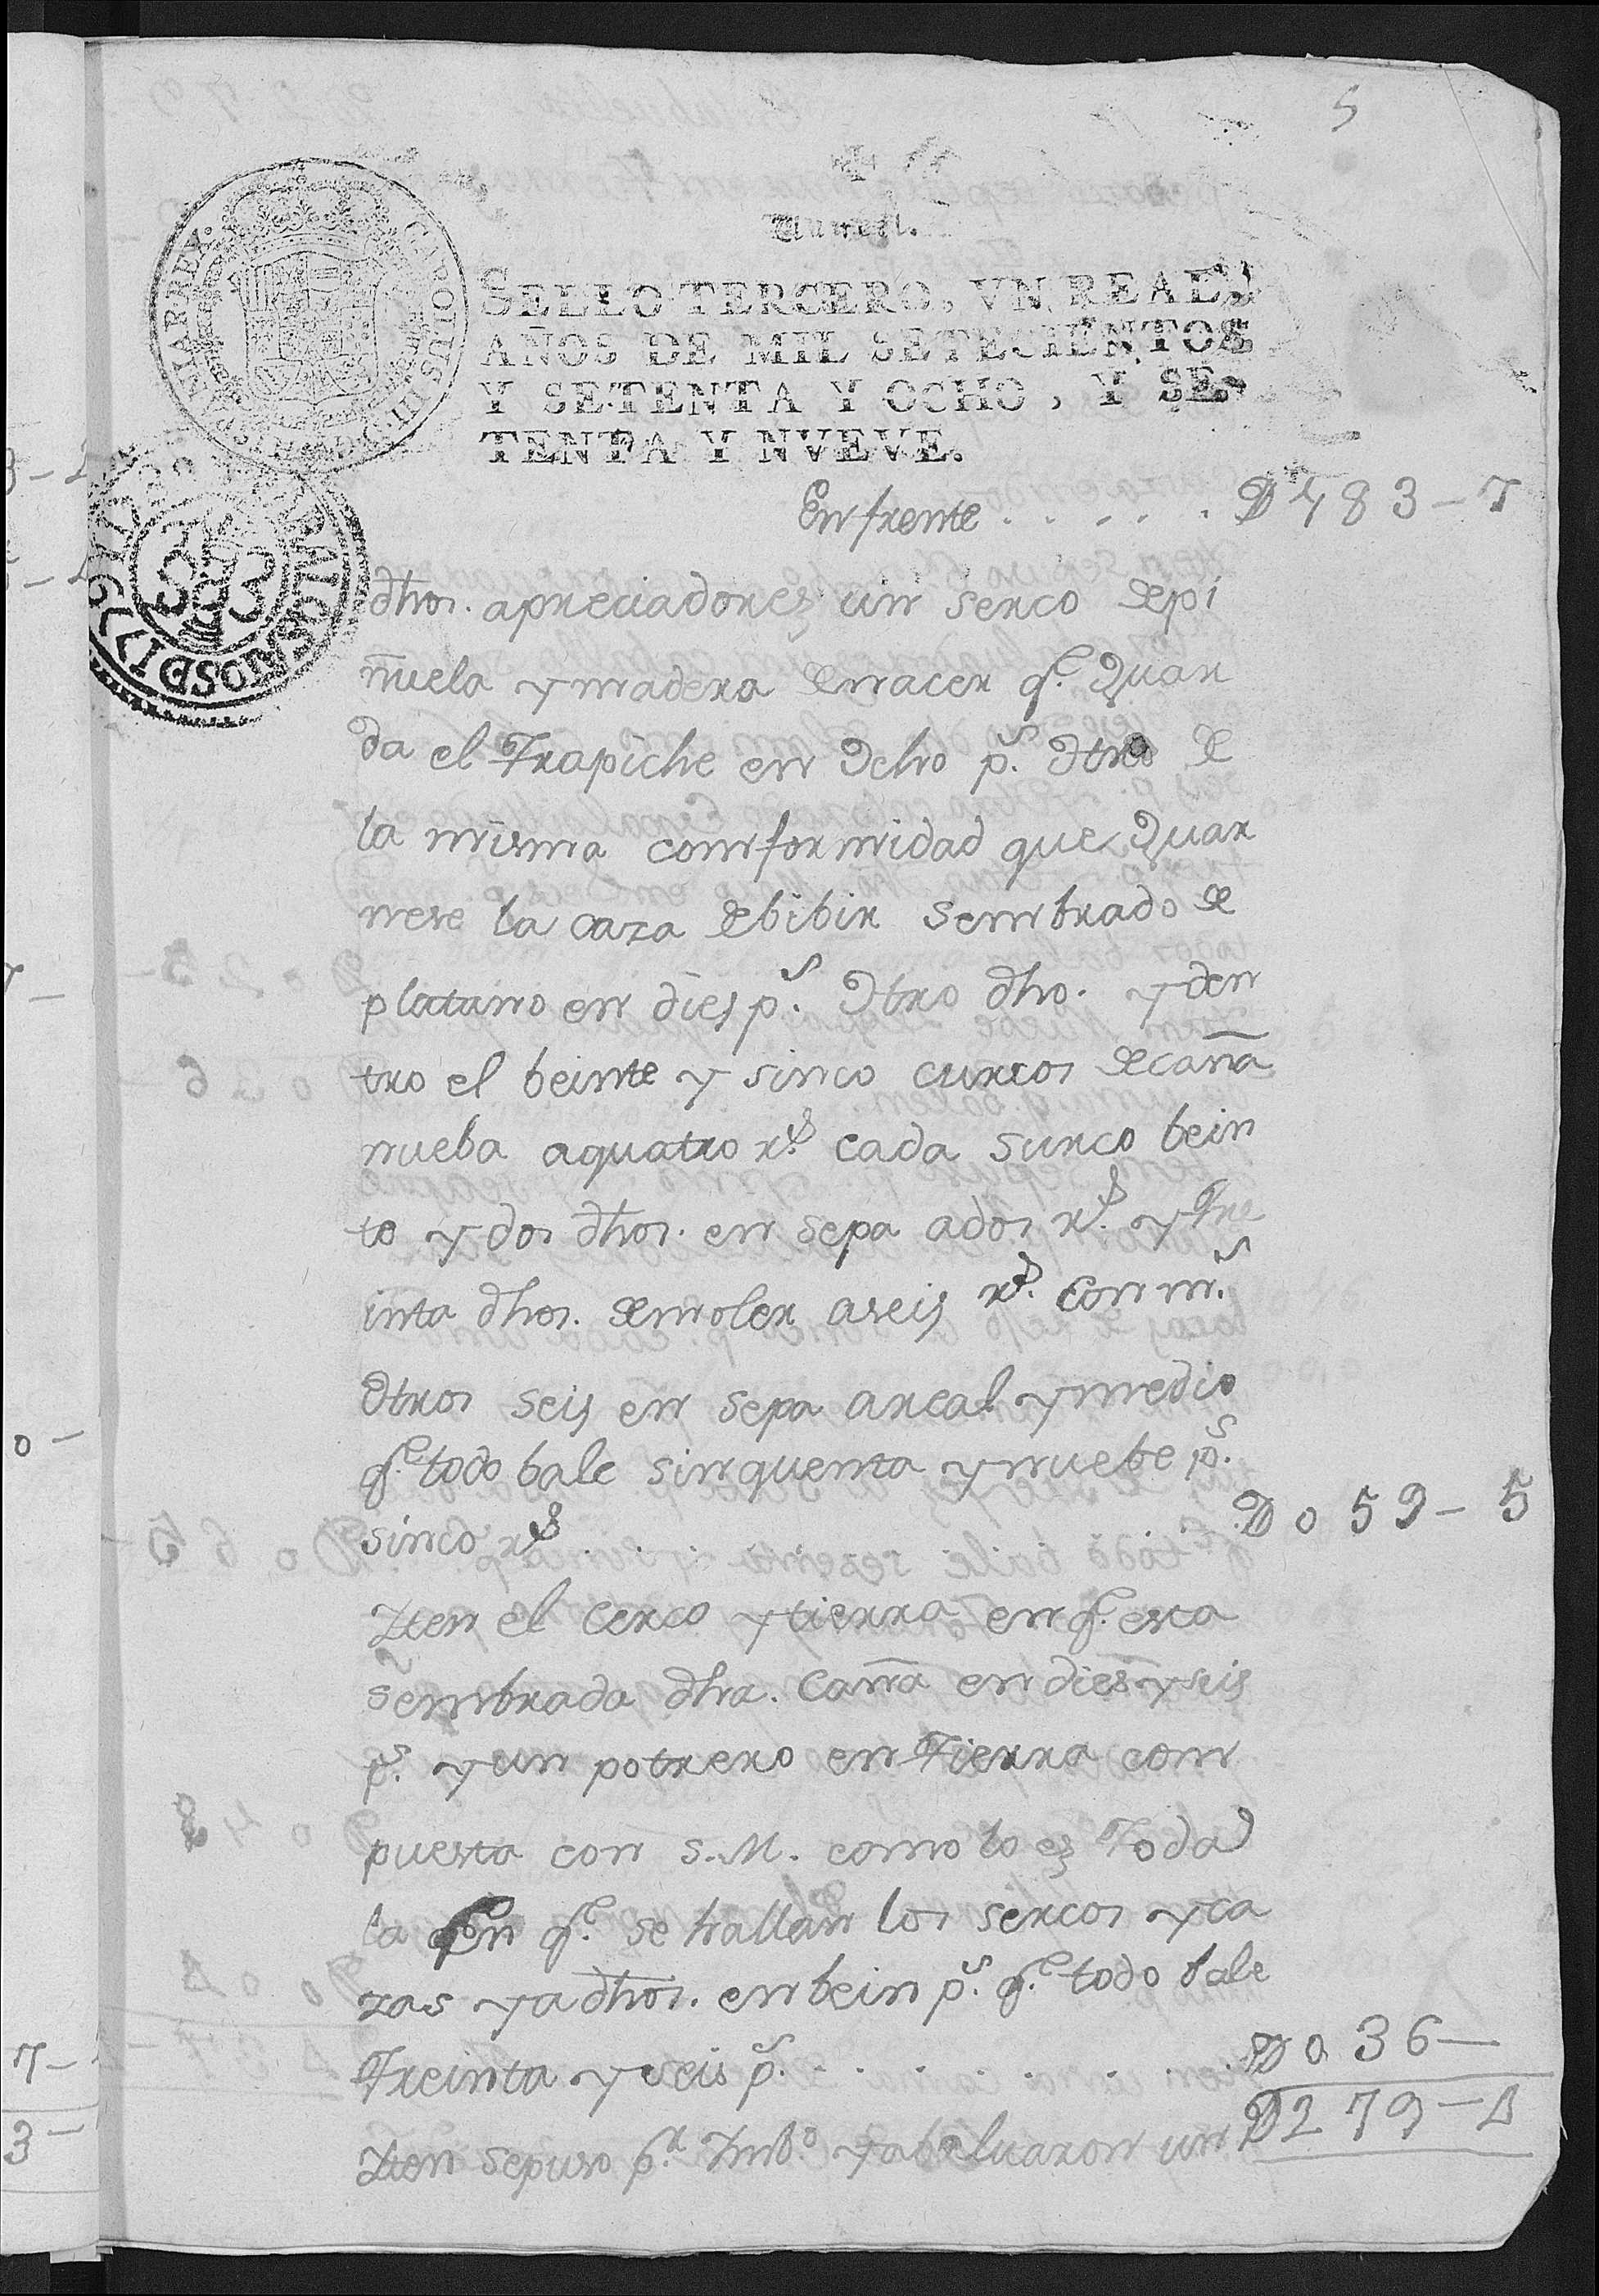 5
Un real.
SELLO TERCERO, VN REAL,
AÑOS DE MIL SETECIENTOS
Y SETENTA Y OCHO, Y SE-
TENTA Y NVEVE.
Enfrente . . . . . D 183-7
dhos. apreciadores un serco depi
ñuela y madera denacer q.e Quar
da el Trapiche en Ocho p.s Otro de
la misma comformidad que Quar
nese la caza debibir sembrado de
platano en dies p.s Otro dho. y den
tro el beinte y sinco curcos de caña
nueba aquatro r.s cada surco bein
te y dos dhos. en sepa a dos r.s y tre
inta dhos. demoler a seis r.s con m.s
Otros seis en sepa a real y medio
q.e todo bale sinquenta y nuebe p.s
sinco r.s . . . . . . . D o 59-5
Iten el cerco y tierra en q.e esta
sembrada dha. Caña en dies y seis
p.s y un potrero en Tierra com
puesta con S.M. como lo es Toda
la en q.e se hallan los sercos y ca
zas ya dhos. en bein p.s q.e todo bale
Treinta y seis p.s . . . . . . D o 36-
D 279-4
Iten sepuso p.r Imb.o y abaluaron un